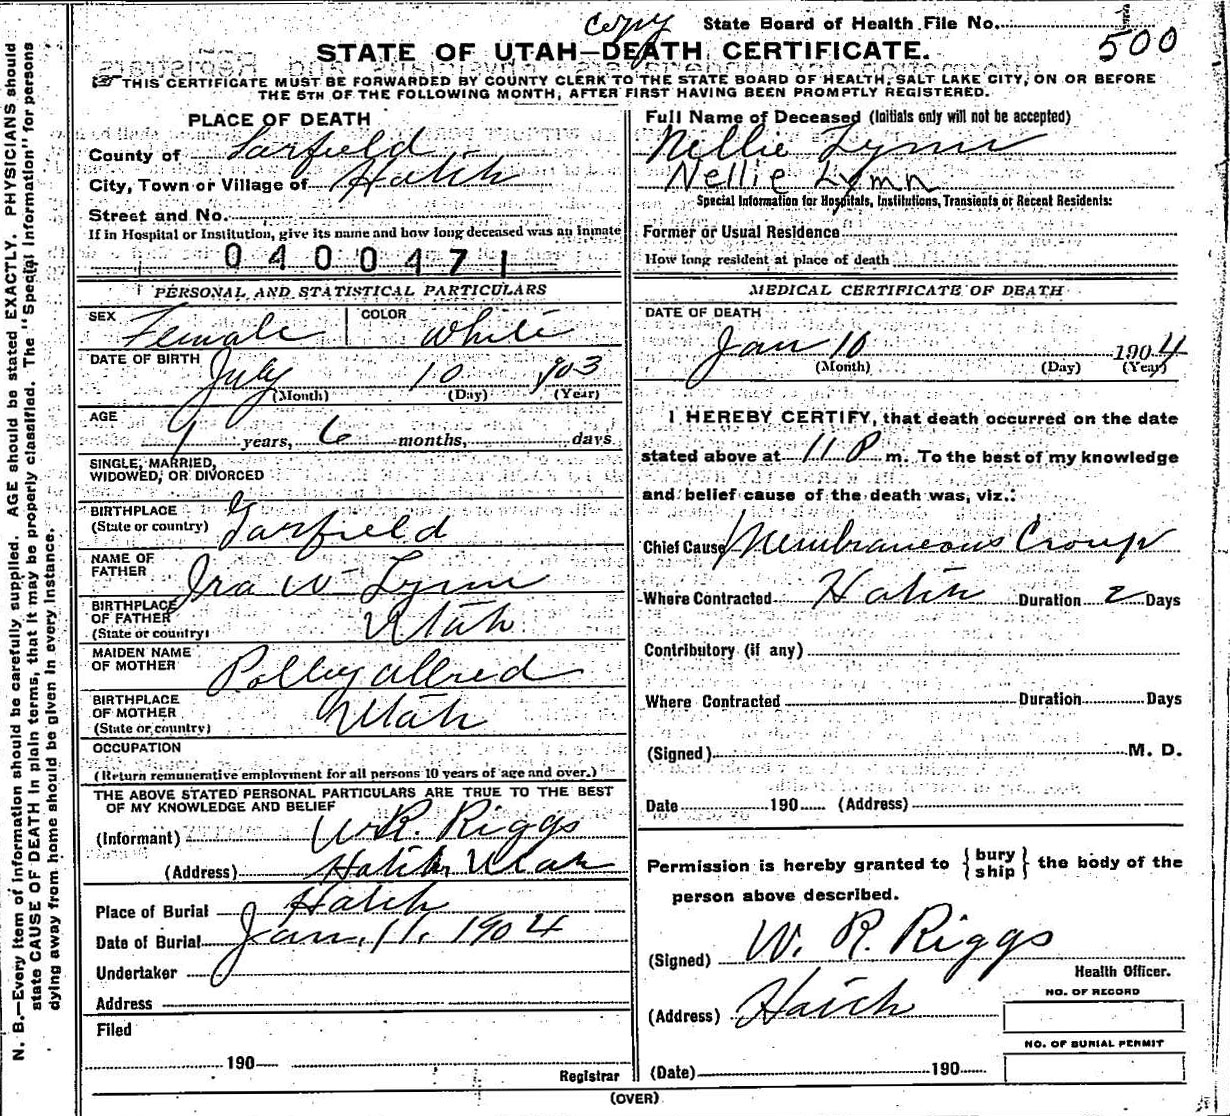 copy State Board of Health File No. 1
500
STATE OF UTAH—DEATH CERTIFICATE.
THIS CERTIFICATE MUST BE FORWARDED BY COUNTY CLERK TO THE STATE BOARD OF HEALTH, SALT LAKE CITY, ON OR BEFORE
THE 5TH OF THE FOLLOWING MONTH, AFTER FIRST HAVING BEEN PROMPTLY REGISTERED.
N. B.—Every item of information should be carefully supplied. AGE should be stated EXACTLY. PHYSICIANS should
state CAUSE OF DEATH in plain terms, that it may be properly classified. The "Special Information" for persons
dying away from home should be given in every instance.
PLACE OF DEATH
County of Garfield
City, Town or Village of Hatch
Street and No.
If in Hospital or Institution, give its name and how long deceased was an inmate
0400471
PERSONAL AND STATISTICAL PARTICULARS
SEX Female COLOR White
DATE OF BIRTH July 10 903
(Month) (Day) (Year)
AGE
1 years, 6 months, days
SINGLE, MARRIED,
WIDOWED, OR DIVORCED
BIRTHPLACE
(State or country) Garfield
NAME OF
FATHER Ira W Lynn
BIRTHPLACE
OF FATHER
(State or country) Utah
MAIDEN NAME
OF MOTHER Polley Allred
BIRTHPLACE
OF MOTHER
(State or country) Utah
OCCUPATION
(Return remunerative employment for all persons 10 years of age and over.)
THE ABOVE STATED PERSONAL PARTICULARS ARE TRUE TO THE BEST
OF MY KNOWLEDGE AND BELIEF
(Informant) W.R. Riggs
(Address) Hatch Utah
Place of Burial Hatch
Date of Burial Jan. 11, 1904
Undertaker
Address
Filed
190
Registrar
Full Name of Deceased (Initials only will not be accepted)
Nellie Lynn
Nellie Lymn
Special Information for Hospitals, Institutions, Transients or Recent Residents:
Former or Usual Residence
How long resident at place of death
MEDICAL CERTIFICATE OF DEATH
DATE OF DEATH
Jan 10 1904
(Month) (Day) (Year)
I HEREBY CERTIFY, that death occurred on the date
stated above at 11 P m. To the best of my knowledge
and belief cause of the death was, viz.:
Chief Cause Membraneous Croup
Where Contracted Hatch Duration 2 Days
Contributory (if any)
Where Contracted Duration Days
(Signed) M. D.
Date 190 (Address)
Permission is hereby granted to { bury ship } the body of the
person above described.
(Signed) W. R. Riggs
Health Officer.
(Address) Hatch
NO. OF RECORD
NO. OF BURIAL PERMIT
(Date) 190
(OVER)